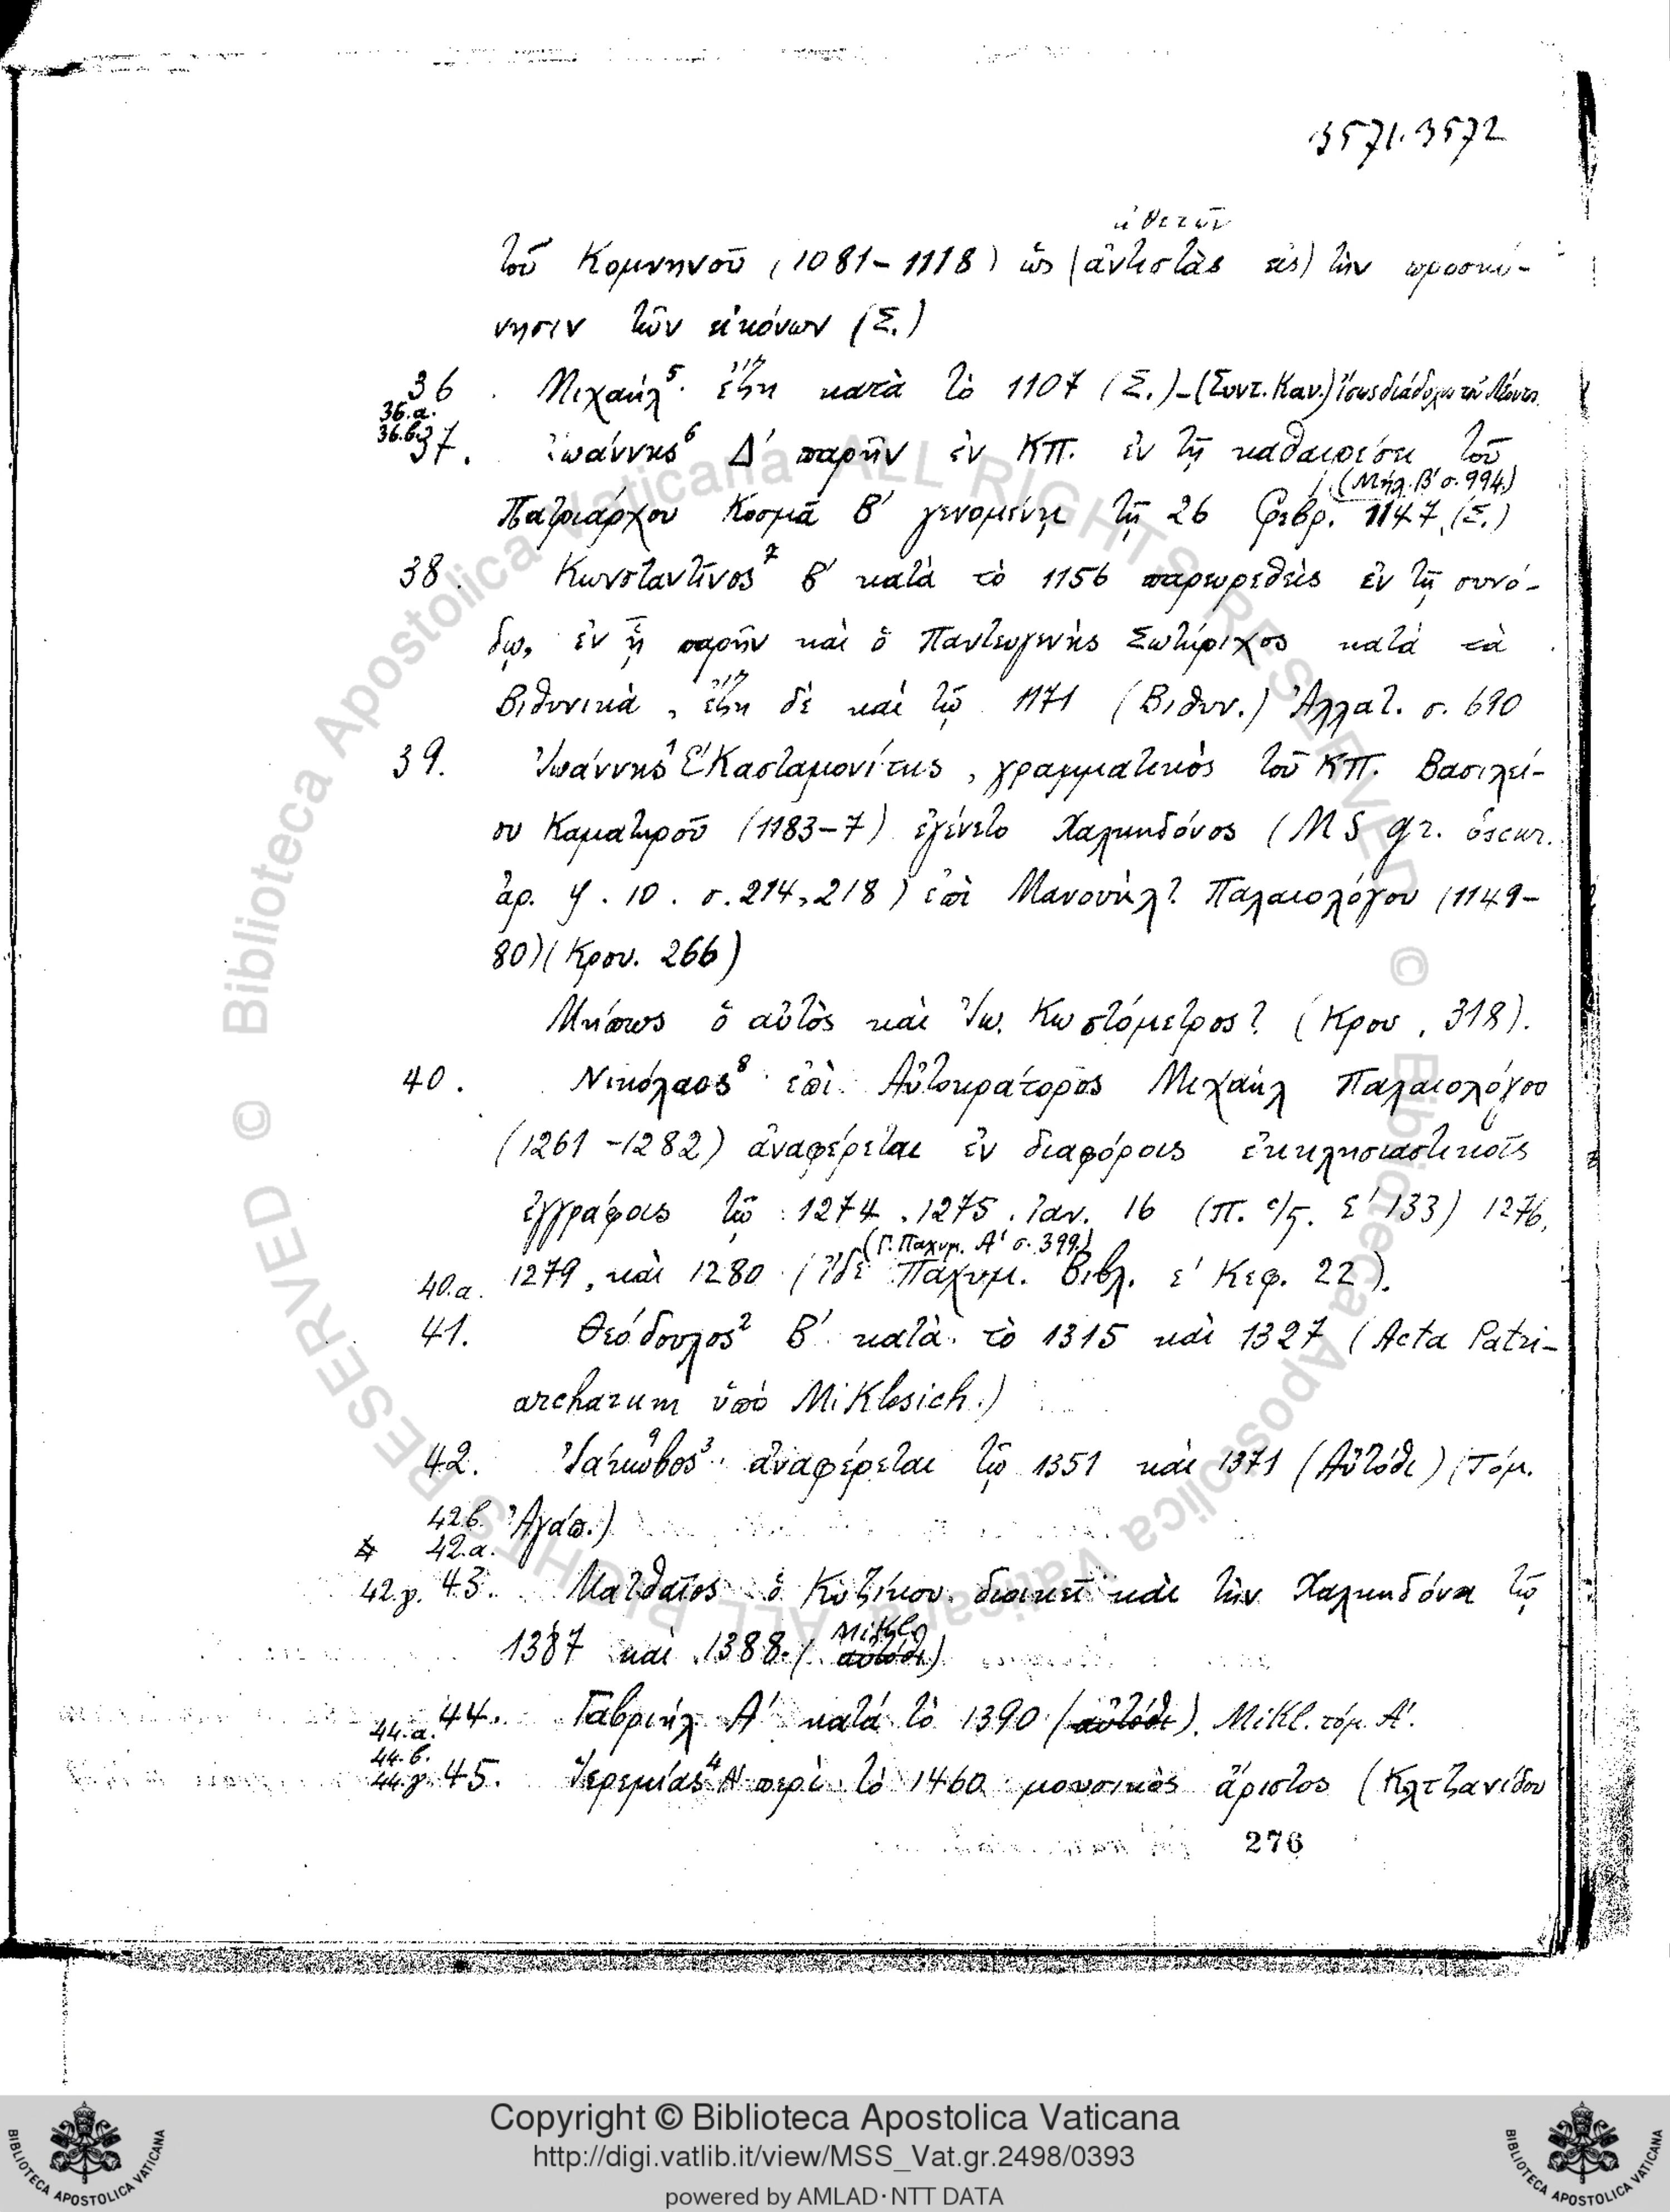 3571.3572
ἀθετῶν
τοῦ Κομνηνοῦ (1081-1118) ὡς (ἀντιστὰς εἰς) τὴν προσκύ-
νησιν τῶν εἰκόνων (Σ.)
36. Μιχαήλ⁵ ἔζη κατὰ τὸ 1107 (Σ.)-(Συντ. Καν.) ἴσως διάδοχος τοῦ Λέοντος
36.α.
36.β. 37. Ἰωάννης⁶ Δ' παρῆν ἐν ΚΠ. ἐν τῇ καθαιρέσει τοῦ
(Μήλ. Β' σ. 994.)
Πατριάρχου Κοσμᾶ Β' γενομένῃ τῇ 26 Φεβρ. 1147. (Σ.)
38. Κωνσταντῖνος⁷ Β' κατὰ τὸ 1156 παρευρεθεὶς ἐν τῇ συνό-
δῳ, ἐν ᾗ παρῆν καὶ ὁ Παντευγενὴς Σωτήριχος κατὰ τὰ
Βιθυνικὰ, ἔζη δὲ καὶ τῷ 1171 (Βιθυν.) Ἀλλατ. σ. 690
39. Ἰωάννης¹ Ε' Κασταμονίτης, γραμματικὸς τοῦ ΚΠ. Βασιλεί-
ου Καματηροῦ (1183-7) ἐγένετο Χαλκηδόνος (MS gr. óscur.
ἀρ. y. 10. σ. 214, 218) ἐπὶ Μανουὴλ? Παλαιολόγου (1149-
80) (Κρου. 266)
Μήπως ὁ αὐτὸς καὶ Ἰω. Κωστόμετρος? (Κρου. 318).
40. Νικόλαος⁸ ἐπὶ Αὐτοκράτορος Μιχαὴλ Παλαιολόγου
(1261-1282) ἀναφέρεται ἐν διαφόροις ἐκκλησιαστικοῖς
ἐγγράφοις τῷ 1274. 1275. Ἰαν. 16 (Π. Σ' 133) 1276,
(Γ. Παχυμ. Α' σ. 399.)
1279, καὶ 1280 (Ἴδε Παχυμ. Βιβλ. ε' Κεφ. 22).
40.α.
41. Θεόδουλος² Β' κατὰ τὸ 1315 καὶ 1327 (Acta Patri-
archarum ὑπὸ Miklosich.)
42. Ἰάκωβος⁹ ³ ἀναφέρεται τῷ 1351 καὶ 1371 (Αὐτόθι) (Τόμ.
42.β. Ἀγάπ.)
42.α.
42.γ. 43. Ματθαῖος ὁ Κυζίκου διοικεῖ καὶ τὴν Χαλκηδόνα τῷ
Mikl.
1387 καὶ 1388. (αὐτόθι)
44. Γαβριήλ Α' κατὰ τὸ 1390 (αὐτόθι). Mikl. τόμ. Α'.
44.α.
44.β.
44.γ. 45. Ἱερεμίας⁴ Α' περὶ τὸ 1460 μουσικὸς ἄριστος (Κηλτζανίδου
276
Copyright © Biblioteca Apostolica Vaticana
http://digi.vatlib.it/view/MSS_Vat.gr.2498/0393
powered by AMLAD·NTT DATA
BIBLIOTECA APOSTOLICA VATICANA
BIBLIOTECA APOSTOLICA VATICANA
© Biblioteca Apostolica Vaticana ALL RIGHTS RESERVED © Biblioteca Apostolica Vaticana ALL RIGHTS RESERVED